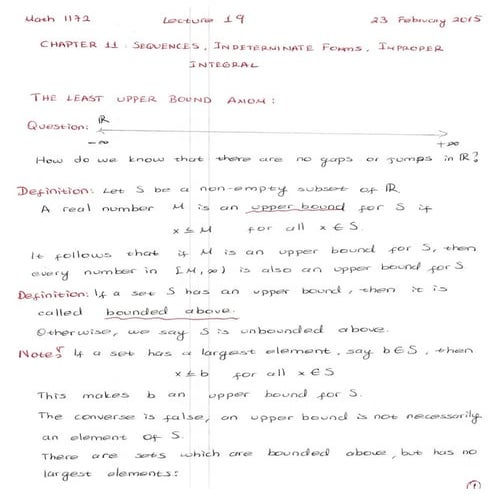 Math 1172 Lecture 19 23 February 2015
CHAPTER 11 : SEQUENCES, INDETERMINATE FORMS, IMPROPER
INTEGRAL
THE LEAST UPPER BOUND AXIOM:
Question: ℝ
-∞ +∞
How do we know that there are no gaps or jumps in ℝ?
Definition: Let S be a non-empty subset of ℝ.
A real number M is an upper bound for S if
x ≤ M for all x ∈ S.
It follows that if M is an upper bound for S, then
every number in [M, ∞) is also an upper bound for S.
Definition: If a set S has an upper bound, then it is
called bounded above.
Otherwise, we say S is unbounded above.
Note: If a set has a largest element, say b ∈ S, then
x ≤ b for all x ∈ S
This makes b an upper bound for S.
The converse is false, an upper bound is not necessarily
an element of S.
There are sets which are bounded above, but has no
largest elements:
1